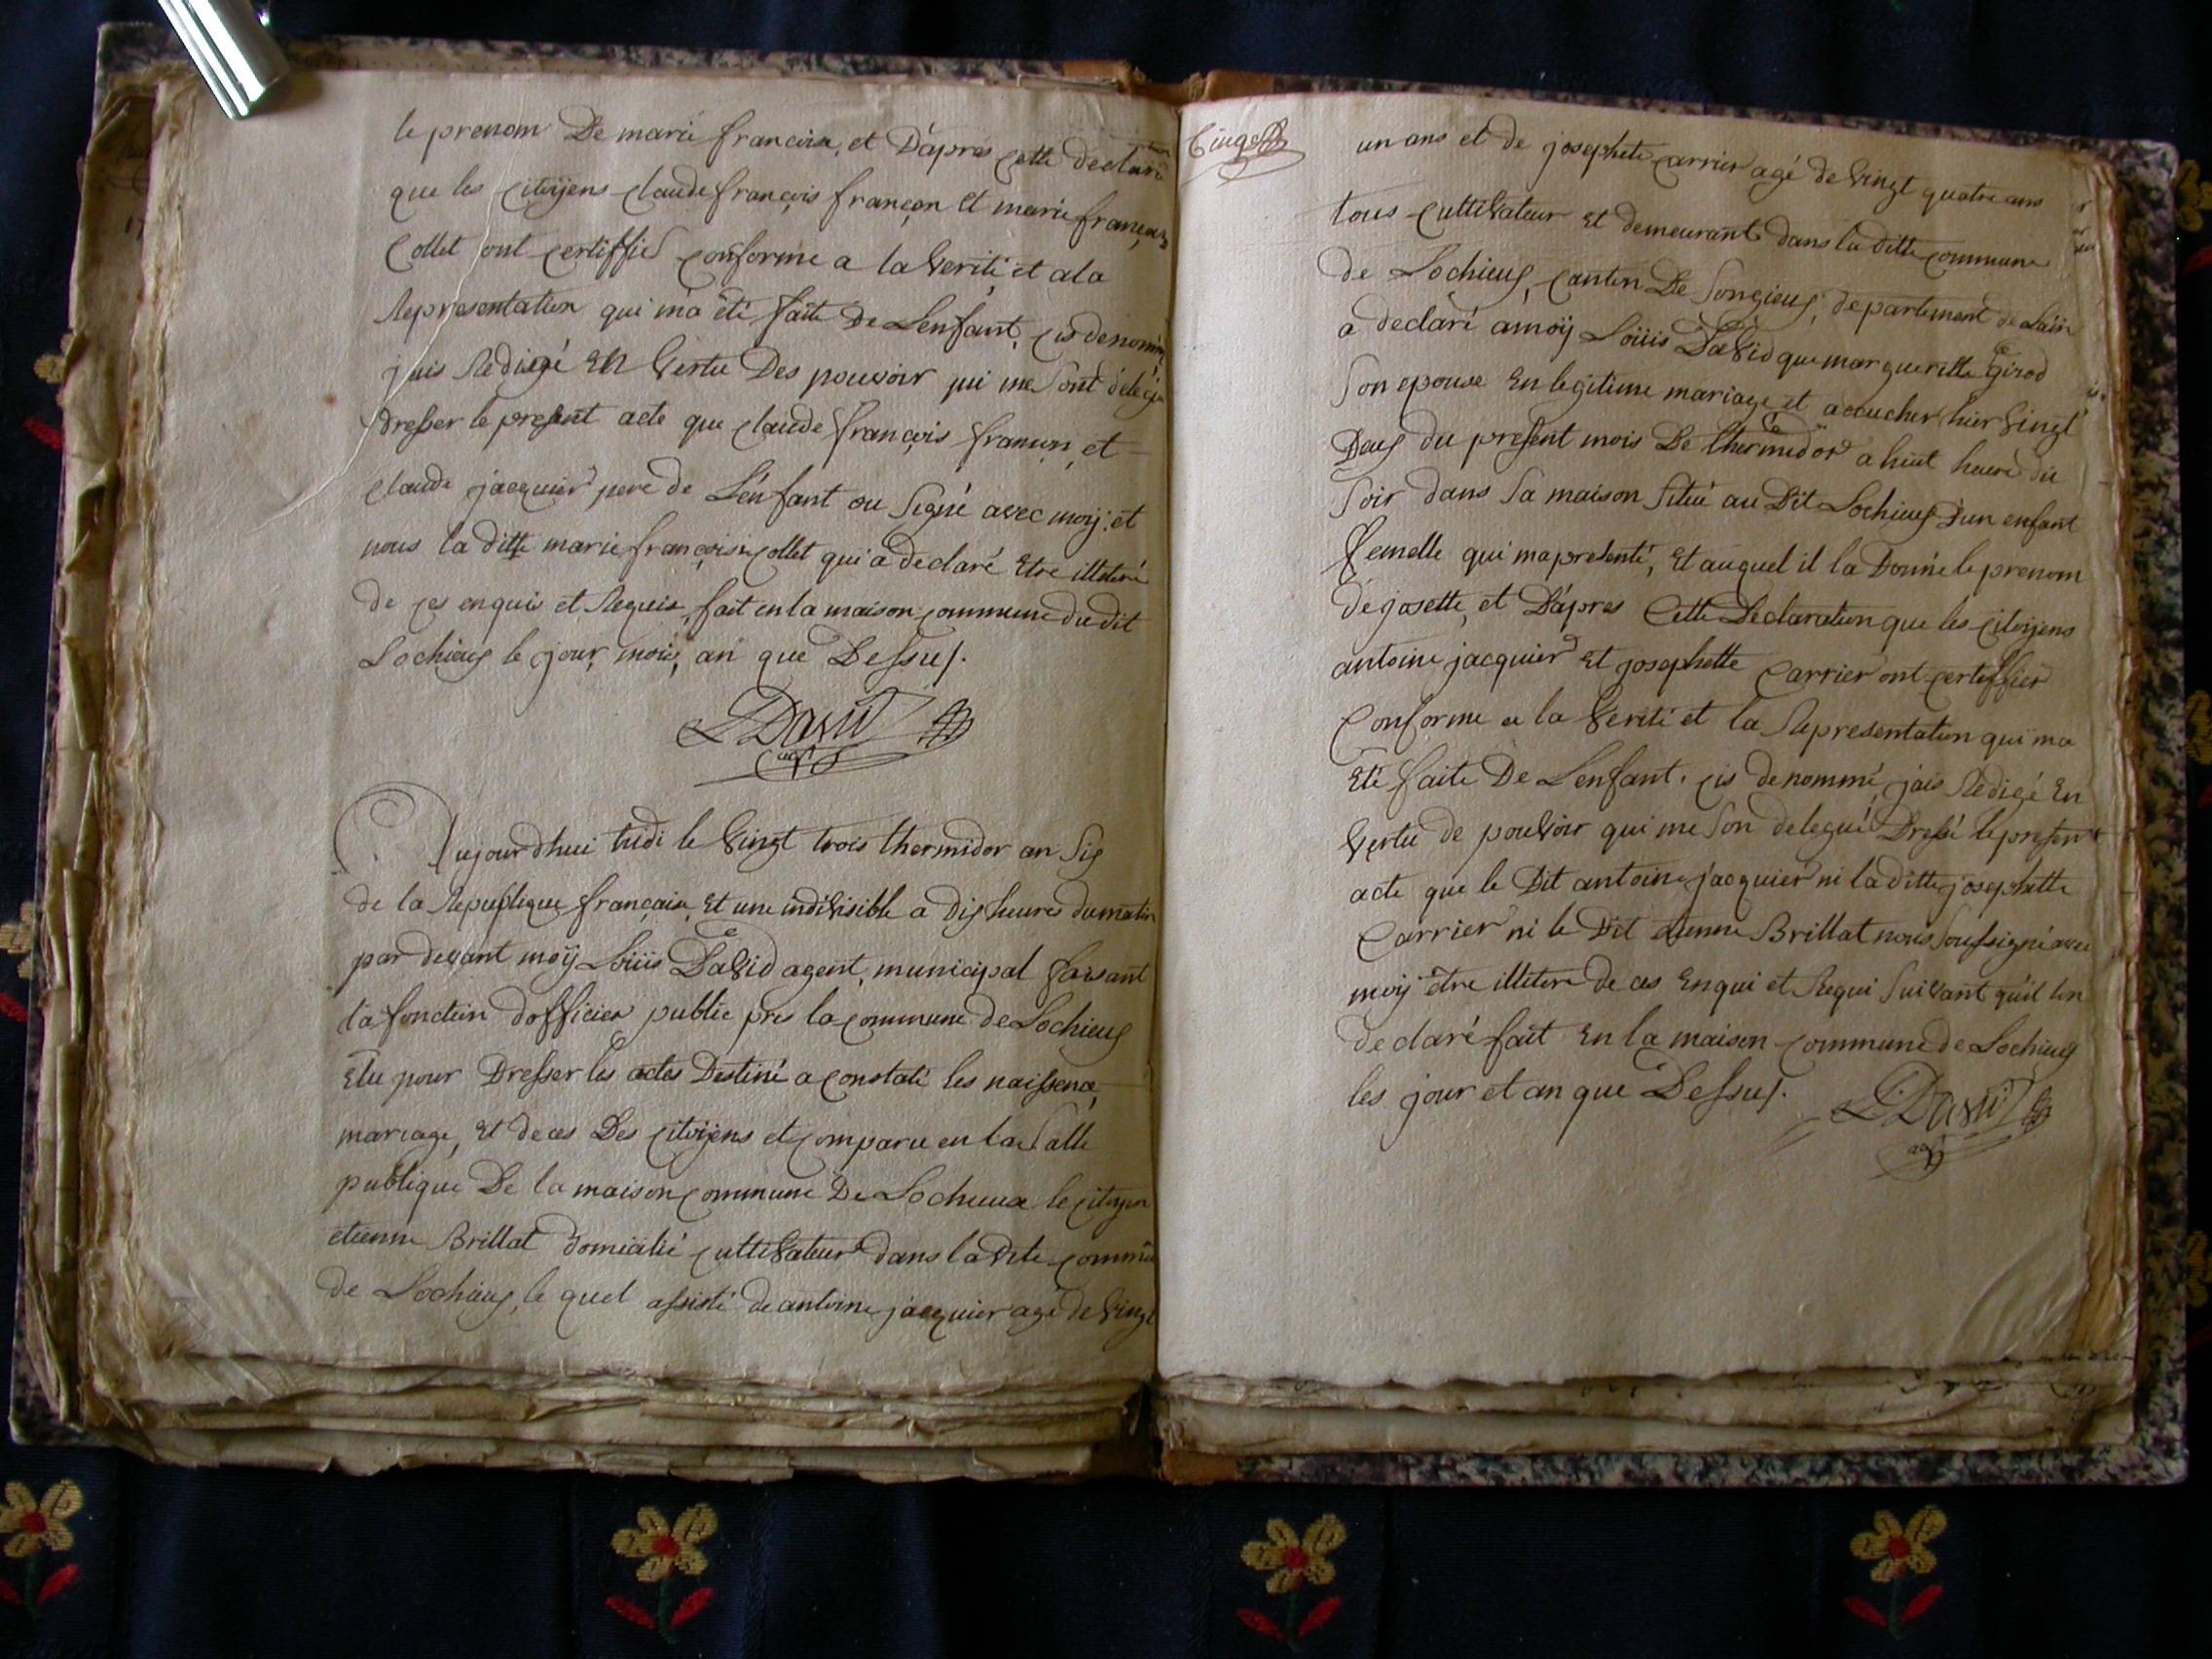 le prenom De marie francoise, et D'apres cette declara
que les citoÿens claude françois françon et marie françoise
Collet ont certiffié conforme a la Verité et a la
Representation qui m'a été faite De L'enfant, cis denommé
jais Redigé En Vertu Des pouvoir qui me Sont délégué
Dresser le present acte que claude françois françon, et
claude jacquier pere de L'énfant ou Signé avec moÿ, et
nous la ditte marie françoise collet qui a declaré Etre illeteré
de ces enquis et Requis, fait en la maison commune du dit
Lochieus le jour, mois, an que Dessus.
LDavid
agt
Aujourdhui tridi le Vingt trois thermidor an Six
de la Republique française, Et une indivisible a Dix heures du matin
par devant moÿ Loüis David agent, municipal faisant
la fonction dofficier public pres la commune de Lochieus
Elu pour Dresser les actes Destiné a constaté les naissence,
mariage, Et deces Des citoÿens et comparu en la Salle
publique De la maison commune De Lochieux le citoyen
etienne Brillat domicilié cultivateur dans la Dite commune
de Lochieus, le quel assisté de antoine jacquier agé de Vingt
un ans et de josephete carrier agé de Vingt quatre ans
tous cultivateur Et demeurant dans la ditte commune
de Lochieus, canton De Songieus, departement de Lain
a declaré a moÿ Loüis David que margueritte Girod
Son epouse En legitime mariage et acoucher hier Vingt
Deus du present mois De thermidor a huit heure du
Soir dans Sa maison Situé au Dit Lochieus D'un enfant
femelle qui ma presenté, Et auquel il la Donné le prenom
de josette, et D'apres Cette Declaration que les citoÿens
antoine jacquier Et josephette Carrier ont certiffier
Conforme a la Verité et la Representation qui ma
Eté faite De L'enfant. cis denommé jais Redigé En
Vertu de pouvoir qui me Son delegué Dressé le present
acte que le Dit antoine jacquier ni la ditte josephette
Carrier ni le Dit etienne Brillat nous Soussigné avec
moÿ être illitere De ces Enqui et Requi Suivant qu'il lon
declaré fait En la maison commune de Lochieus
les jour et an que Dessus.
LDavid
agt